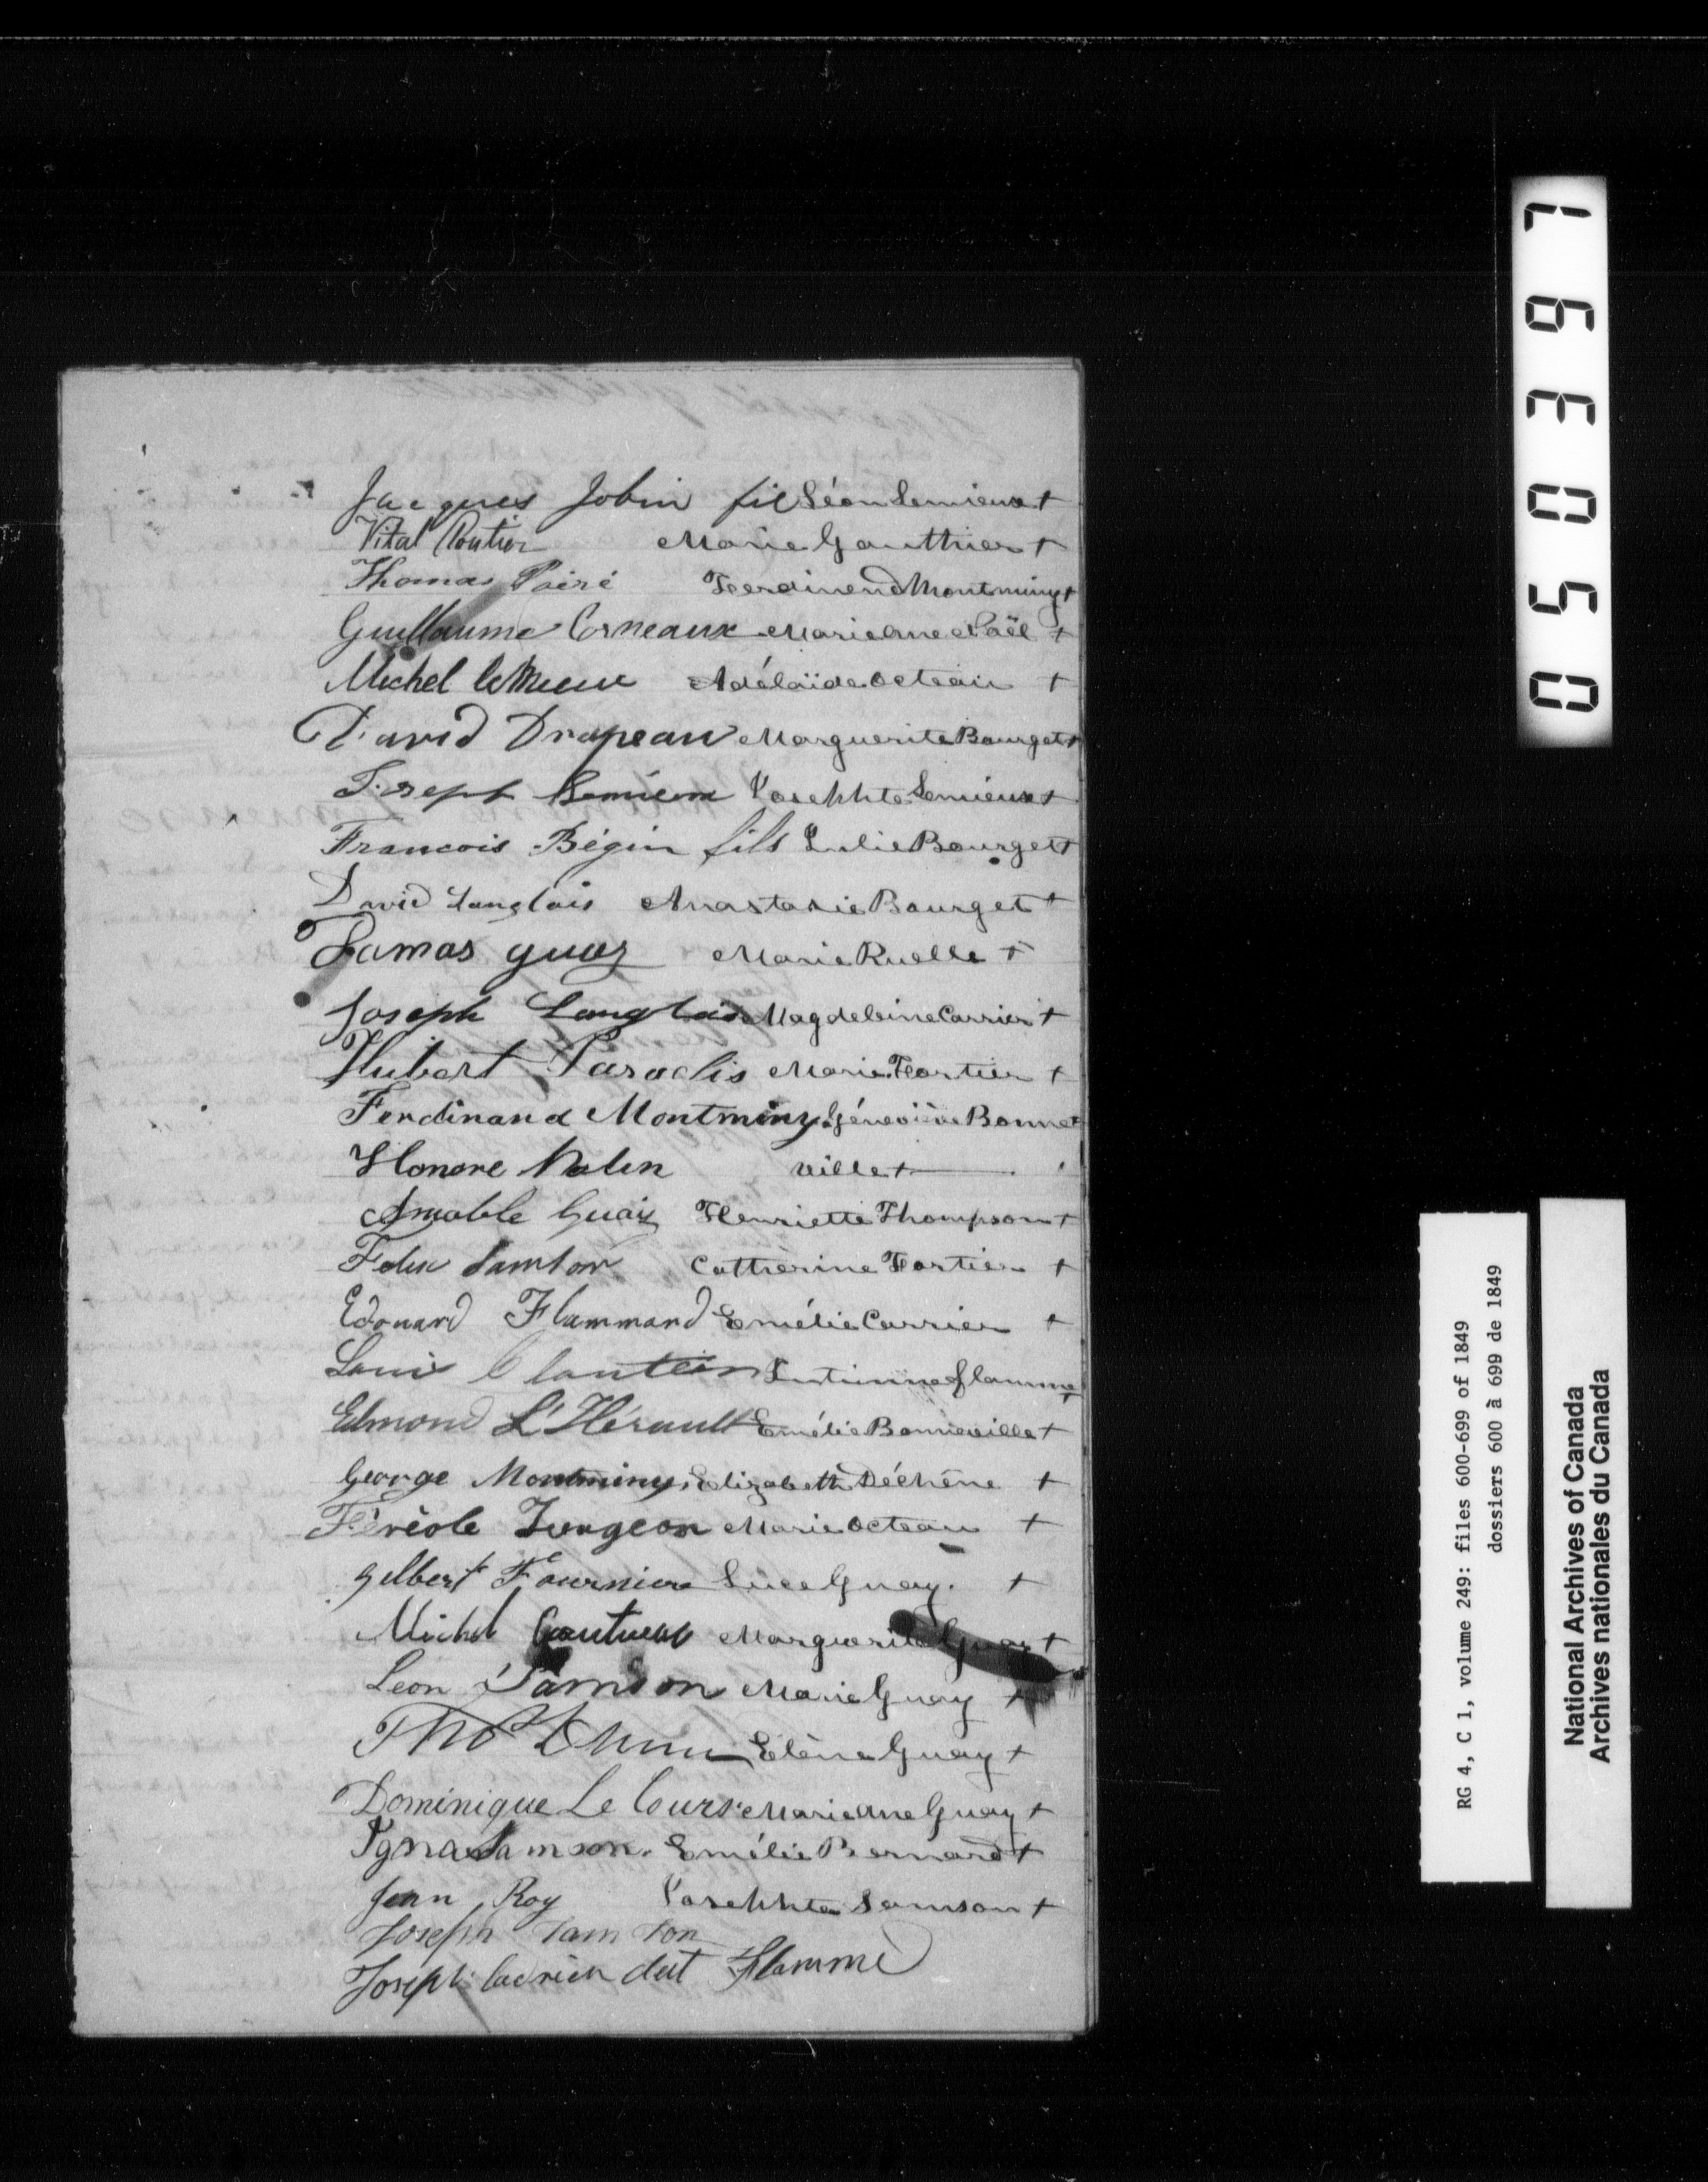 Jacques Jobin fils Léon Lemieux +
Vital Poutier Marie Gauthier +
Thomas Poiré Ferdinend Montminy +
Guillaume Corneaux Marie Anne Noël +
Michel lemieux Adélaïde Octeau +
David Drapeau Marguerite Bourget +
Joseph Lemieux Josephte Lemieux +
Francois Bégin fils Julie Bourget +
David Langlois Anastasie Bourget +
Damas guay Marie Ruelle +
Joseph Langlois Magdeleine Carrier +
Hubert Paradis Marie Fortier +
Ferdinand Montminy Généviève Bonne
Honore Nolin ville +
Amable Guay Henriette Thompson +
Felix Samson Cattherine Fortier +
Edouard Flammand Emélie Carrier +
Louis Flamme +
Edmond L'Hérault Emélie Bonneville +
George Montminy Elizabeth Déchêne +
Féréole Turgeon Marie Octeau +
gilbert Fournier Luce Guay. +
Michel Marguerite Guay +
Leon Samson Marie Guay +
Thos Elène Guay +
Dominique Le Cours Marie Anne Guay +
Ygnas Samson. Emélie Bernard +
Jean Roy Josephte Samson +
Joseph Samson
Joseph carrier dit Flamme
0 5 0 3 9 7
RG 4, C 1, volume 249: files 600-699 of 1849
dossiers 600 à 699 de 1849
National Archives of Canada
Archives nationales du Canada